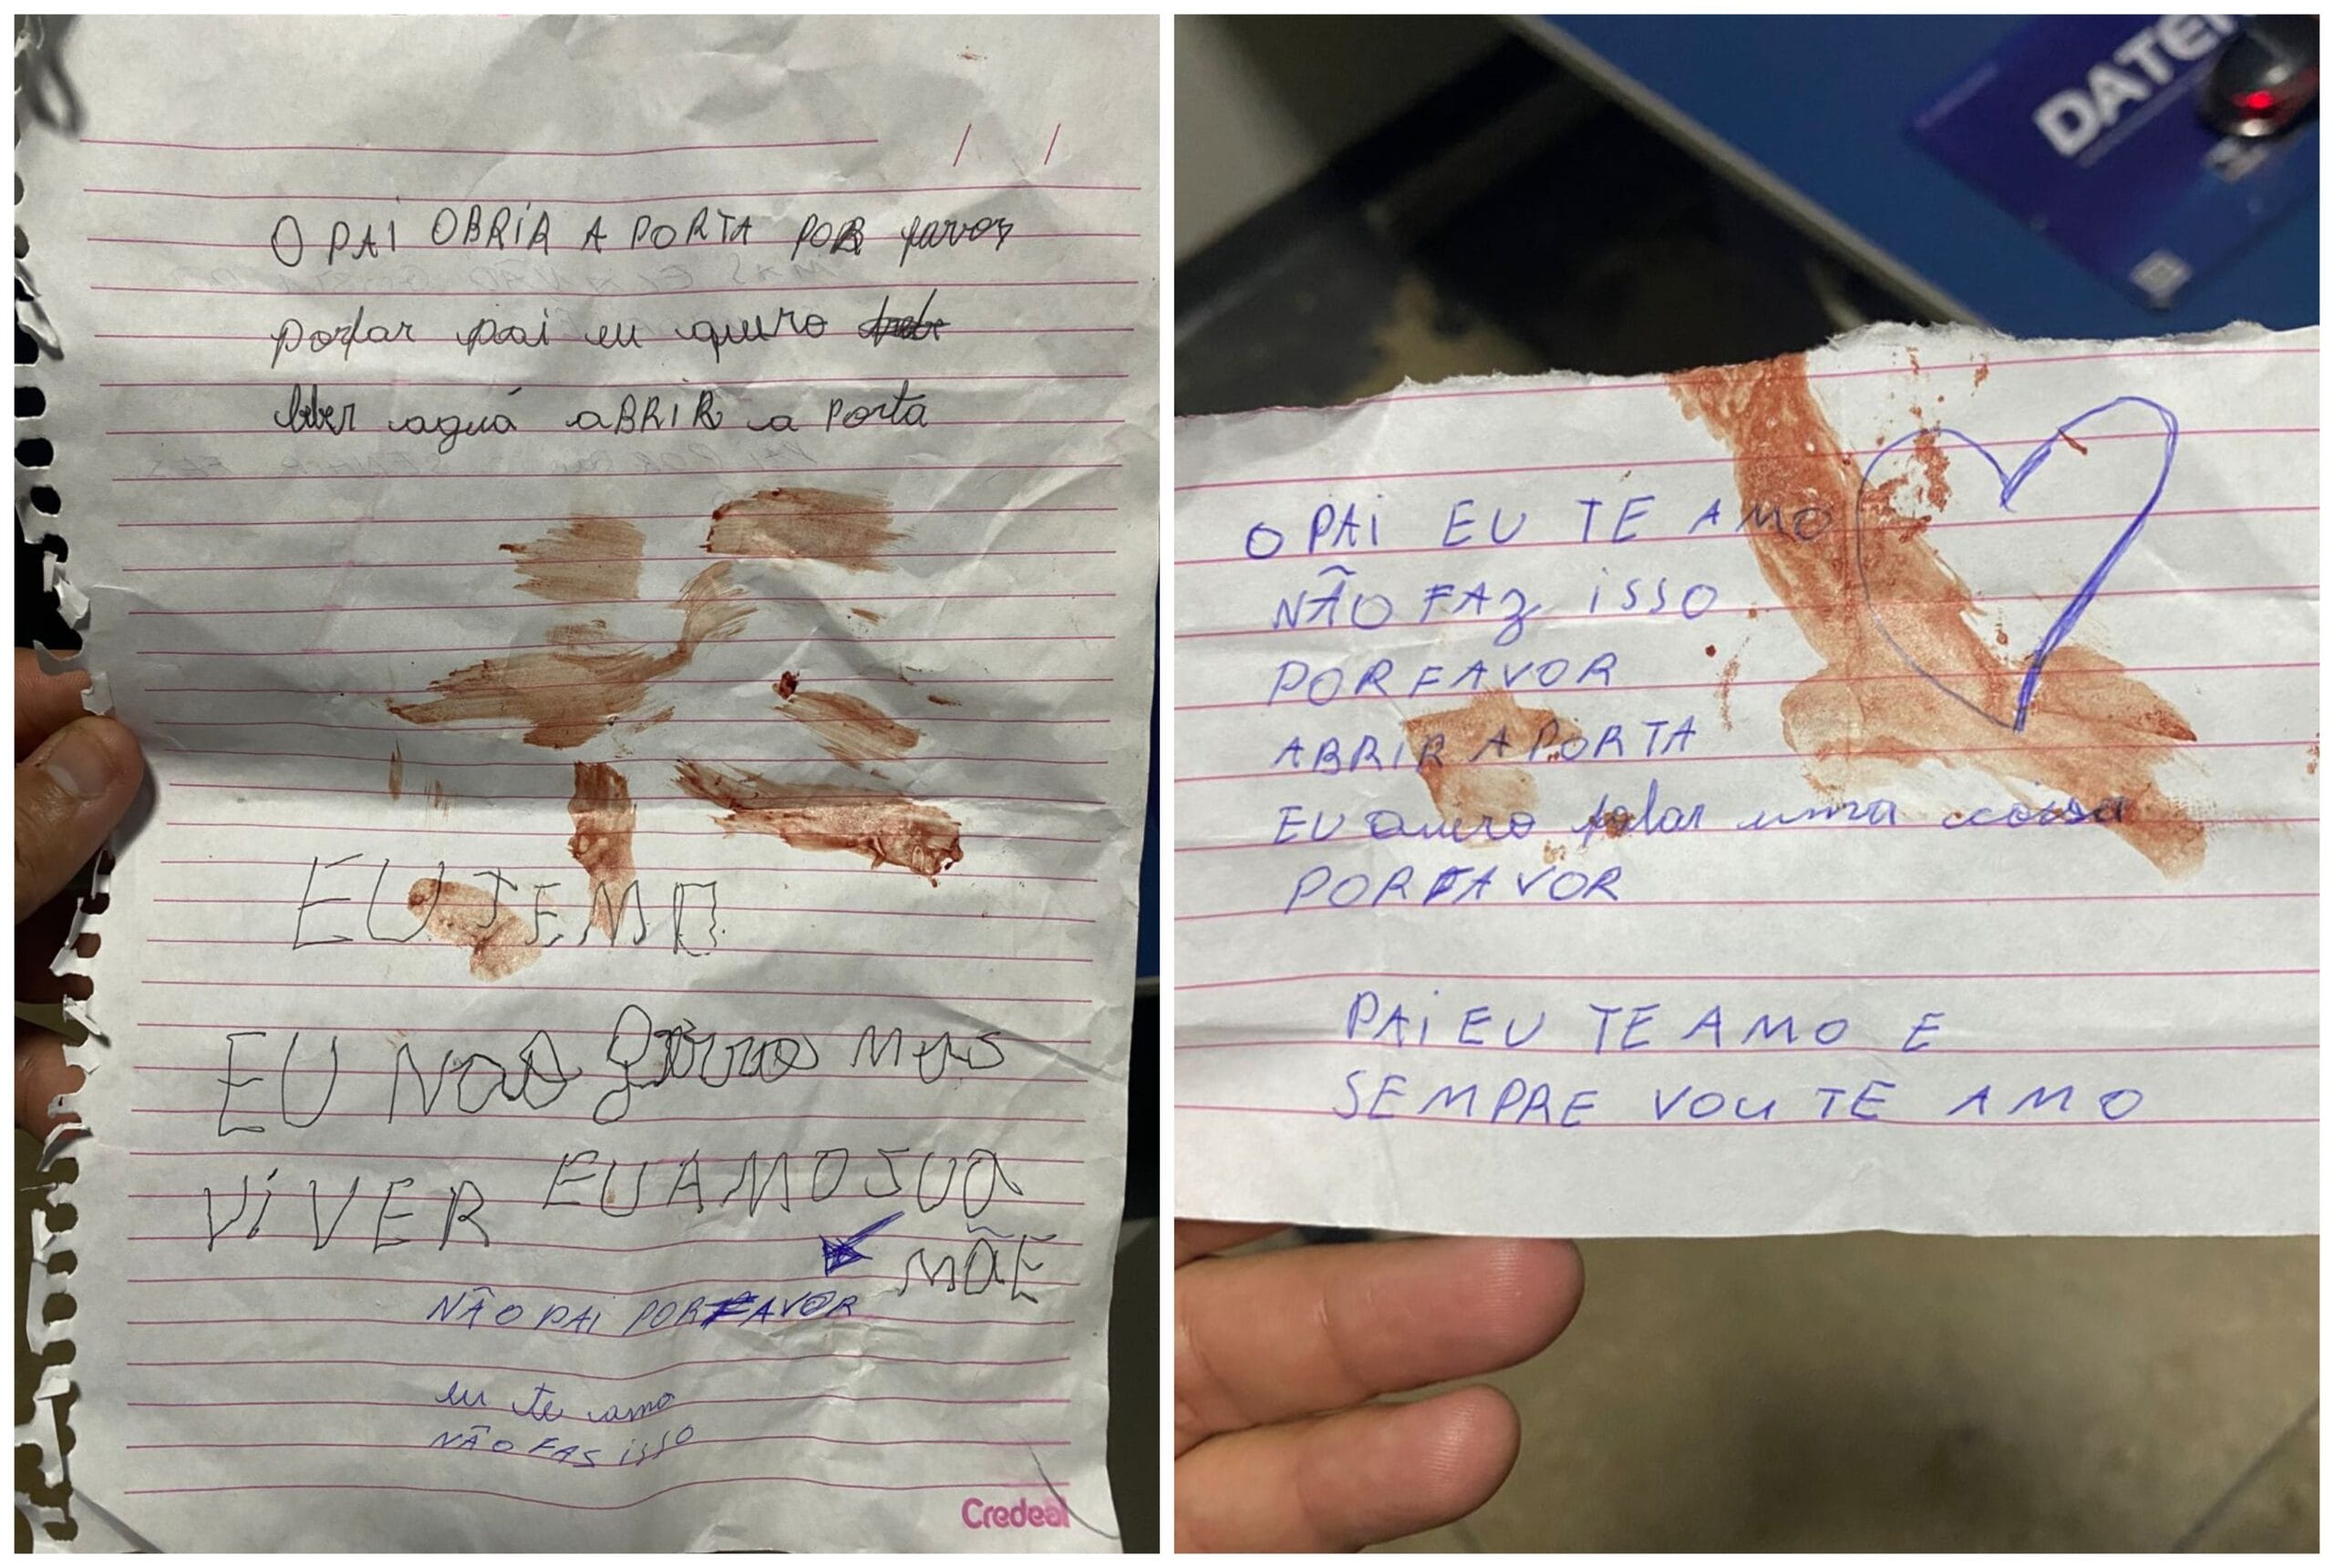 O PAI OBRIR A PORTA POR favor
porfar pai eu quero
beber aguá aBRIR a Porta
EU TEMO
EU Nao Qurro mus
ViVER EU AMO SUA
MÃE
NÃO PAI PORFAVOR
eu te amo
NÃO FAS isso
Credeal
DATEN
O PAI EU TE AMO
NÃO FAZ isso
PORFAVOR
ABRIR A PORTA
EU quero falar uma coisa
PORFAVOR
PAI EU TE AMO E
SEMPRE VOU TE AMO